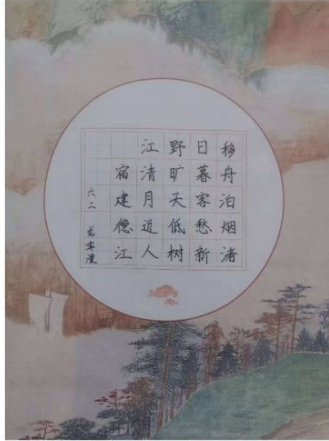 移舟泊烟渚
日暮客愁新
野旷天低树
江清月近人
宿建德江
六二